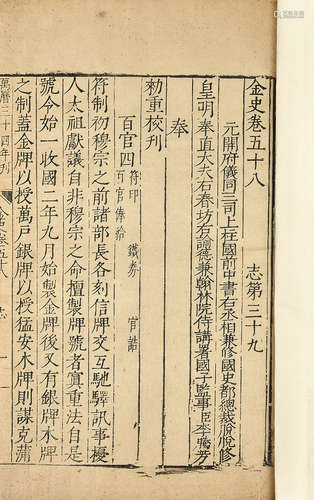 金史卷五十八
志第三十九
元開府儀同三司上柱國前中書右丞相兼修國史都總裁脫脫修
皇明奉直大夫右春坊右諭德兼翰林院侍講署國子監事臣李騰芳
奉
勑重校刊
百官四
符印 鐵券 官誥
百官俸給
符制初穆宗之前諸部長各刻信牌交互馳驛訊事擾
人太祖獻議自非穆宗之命擅製牌號者寘重法自是
號令始一收國二年九月始製金牌後又有銀牌木牌
之制蓋金牌以授萬戶銀牌以授猛安木牌則謀克蒲
萬曆三十四年刊